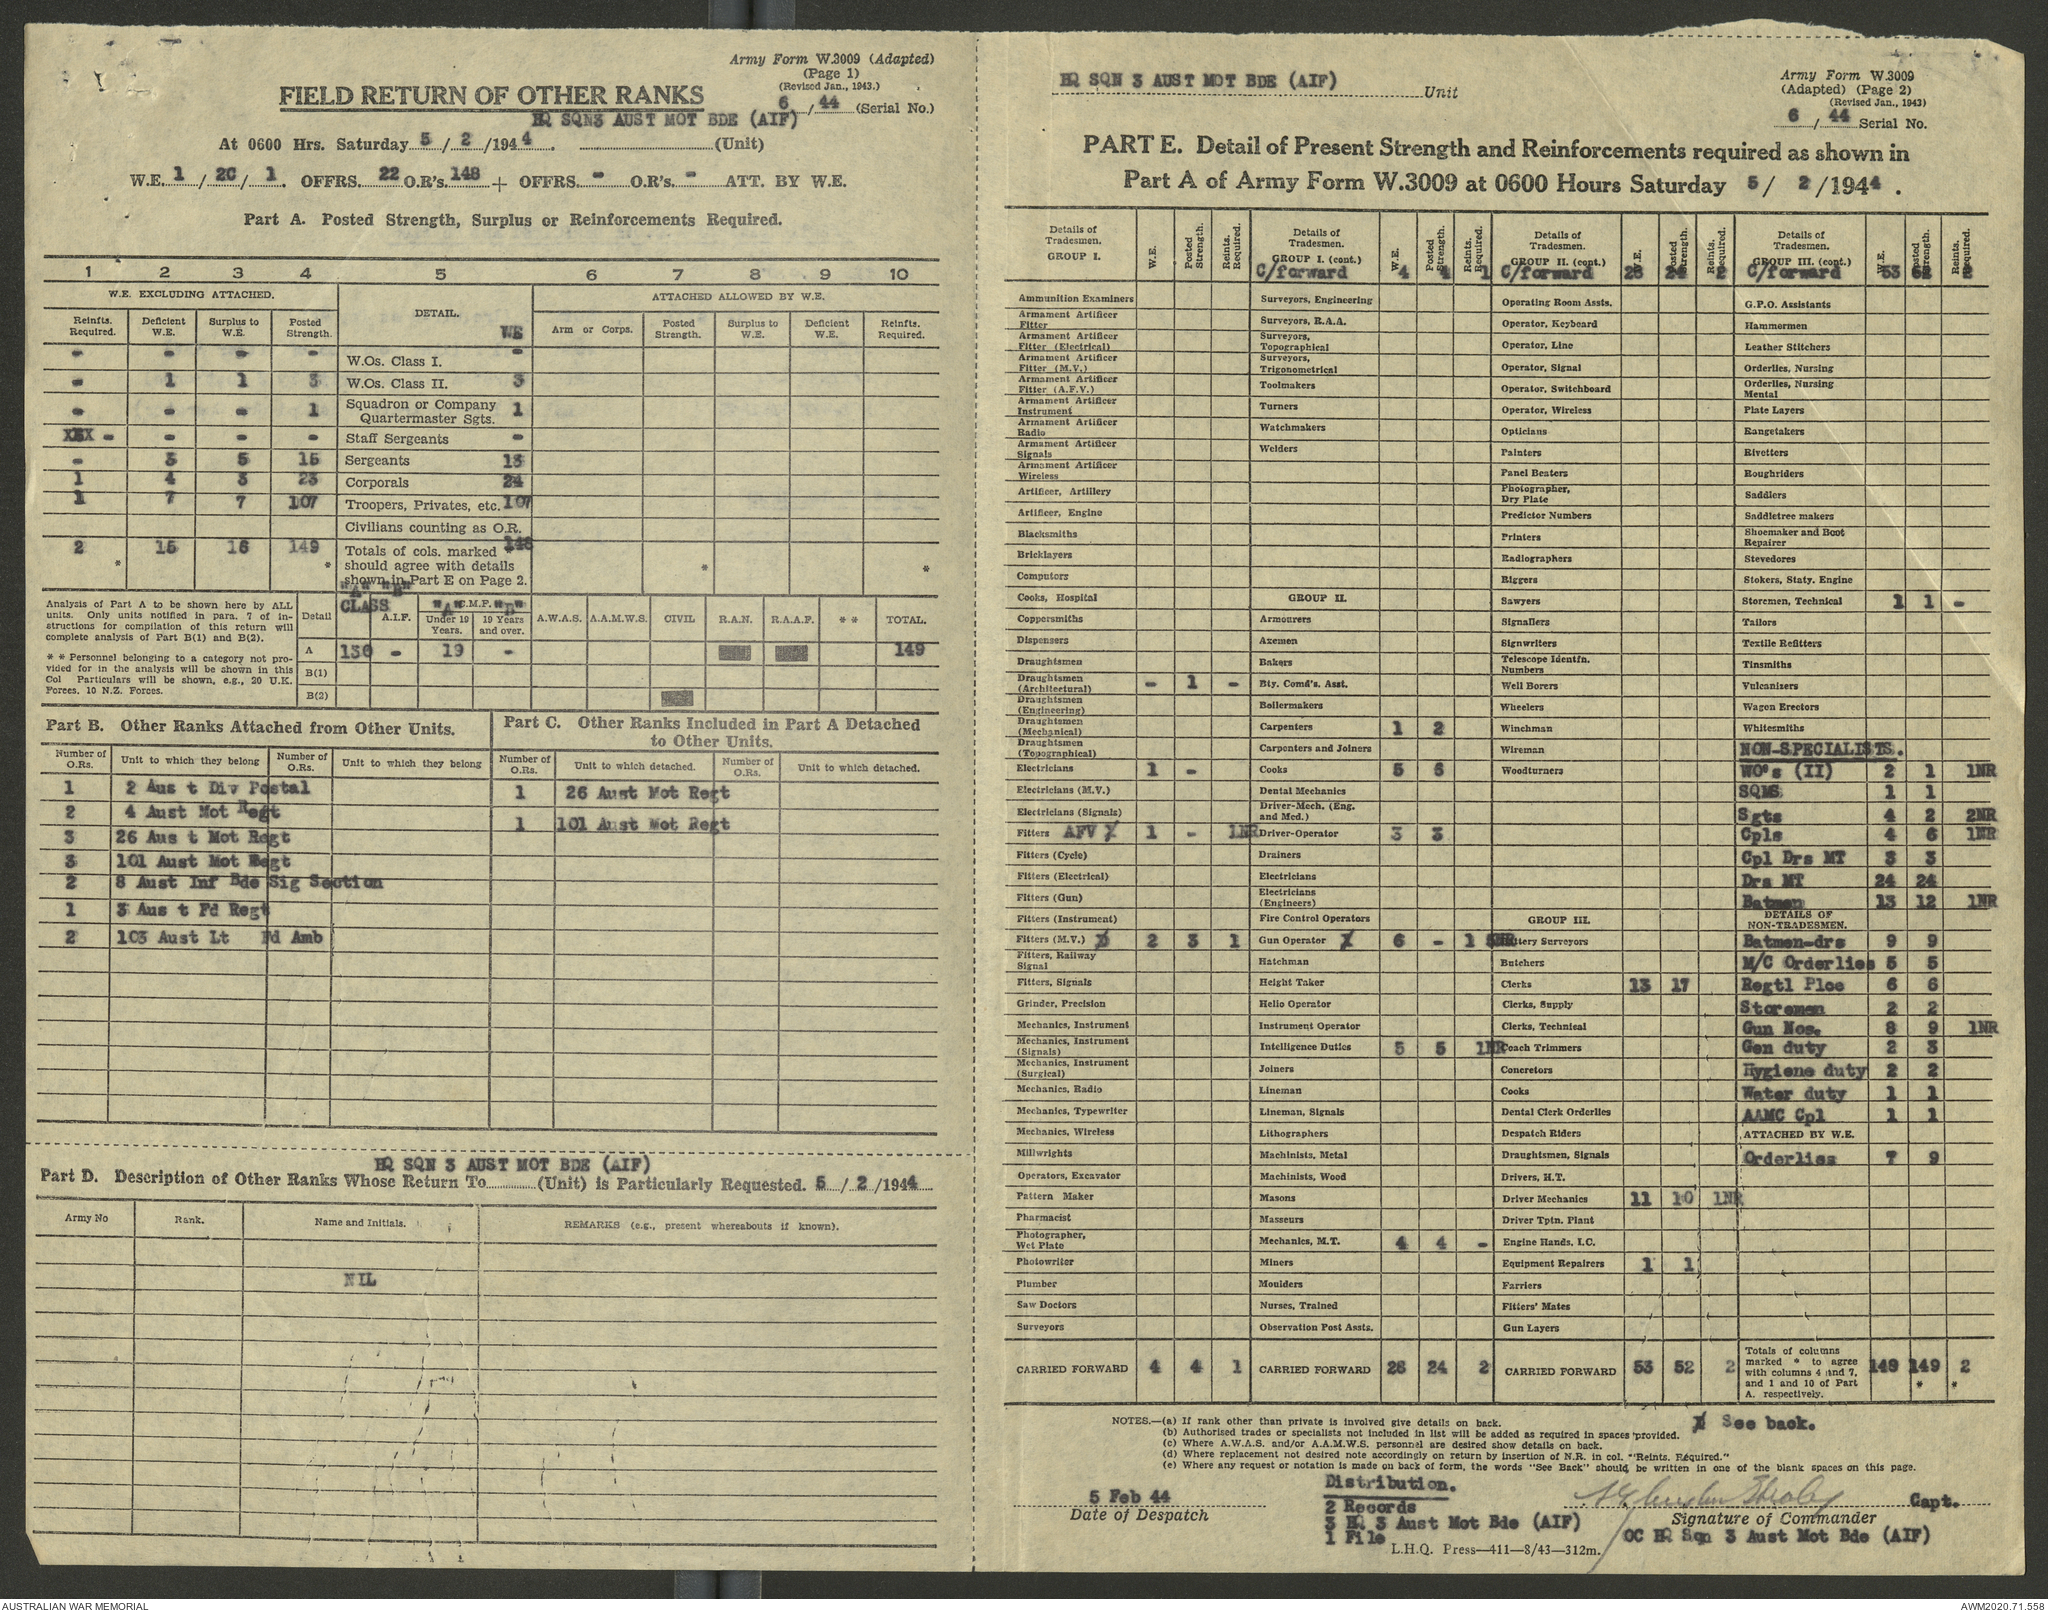 Army Form W.3009 (Adapted)
(Page 1)
(Revised Jan., 1943.)
FIELD RETURN OF OTHER RANKS
6/44 (Serial No.)
HQ SQN3 AUST MOT BDE (AIF)
At 0600 Hrs. Saturday 5/2/1944. (Unit)
W.E. 1/2C/1. OFFRS. 22 O.R's. 148 + OFFRS. - O.R's. - ATT. BY W.E.
Part A. Posted Strength, Surplus or Reinforcements Required.
1 2 3 4 5 6 7 8 9 10
W.E. EXCLUDING ATTACHED. DETAIL. ATTACHED ALLOWED BY W.E.
Reinfts. Required. Deficient W.E. Surplus to W.E. Posted Strength. WE Arm or Corps. Posted Strength. Surplus to W.E. Deficient W.E. Reinfts. Required.
- - - - W.Os. Class I. -
- 1 1 3 W.Os. Class II. 3
- - - 1 Squadron or Company Quartermaster Sgts. 1
XXX - - - - Staff Sergeants -
- 3 5 15 Sergeants 13
1 4 3 23 Corporals 24
1 7 7 107 Troopers, Privates, etc. 107
Civilians counting as O.R.
2 15 16 149 Totals of cols. marked 148
* * should agree with details * *
shown in Part E on Page 2.
Analysis of Part A to be shown here by ALL
units. Only units notified in para. 7 of in-
structions for compilation of this return will
complete analysis of Part B(1) and B(2).
* * Personnel belonging to a category not pro-
vided for in the analysis will be shown in this
Col Particulars will be shown, e.g., 20 U.K.
Forces, 10 N.Z. Forces.
"A" "B"
Detail CLASS A.I.F. "A" C.M.F. "B" Under 19 Years. 19 Years and over. A.W.A.S. A.A.M.W.S. CIVIL R.A.N. R.A.A.F. * * TOTAL.
A 130 - 19 - 149
B(1)
B(2)
Part B. Other Ranks Attached from Other Units.
Number of O.Rs. Unit to which they belong Number of O.Rs. Unit to which they belong
1 2 Aus t Div Postal
2 4 Aust Mot Regt
3 26 Aus t Mot Regt
3 101 Aust Mot Regt
2 8 Aust Inf Bde Sig Section
1 3 Aus t Fd Regt
2 103 Aust Lt Fd Amb
Part C. Other Ranks Included in Part A Detached
to Other Units.
Number of O.Rs. Unit to which detached. Number of O.Rs. Unit to which detached.
1 26 Aust Mot Regt
1 101 Aust Mot Regt
HQ SQN 3 AUST MOT BDE (AIF)
Part D. Description of Other Ranks Whose Return To (Unit) is Particularly Requested. 5/2/1944
Army No Rank. Name and Initials. REMARKS (e.g., present whereabouts if known).
NIL
HQ SQN 3 AUST MOT BDE (AIF) Unit
Army Form W.3009
(Adapted) (Page 2)
(Revised Jan., 1943)
6/44 Serial No.
PART E. Detail of Present Strength and Reinforcements required as shown in
Part A of Army Form W.3009 at 0600 Hours Saturday 5/2/1944.
Details of Tradesmen. GROUP I. W.E. Posted Strength. Reints. Required.
Ammunition Examiners
Armament Artificer Fitter
Armament Artificer Fitter (Electrical)
Armament Artificer Fitter (M.V.)
Armament Artificer Fitter (A.F.V.)
Armament Artificer Instrument
Armament Artificer Radio
Armament Artificer Signals
Armament Artificer Wireless
Artificer, Artillery
Artificer, Engine
Blacksmiths
Bricklayers
Computors
Cooks, Hospital
Coppersmiths
Dispensers
Draughtsmen
Draughtsmen (Architectural) - 1 -
Draughtsmen (Engineering)
Draughtsmen (Mechanical)
Draughtsmen (Topographical)
Electricians 1 -
Electricians (M.V.)
Electricians (Signals)
Fitters AFV 1 - 1NR
Fitters (Cycle)
Fitters (Electrical)
Fitters (Gun)
Fitters (Instrument)
Fitters (M.V.) 2 3 1
Fitters, Railway Signal
Fitters, Signals
Grinder, Precision
Mechanics, Instrument
Mechanics, Instrument (Signals)
Mechanics, Instrument (Surgical)
Mechanics, Radio
Mechanics, Typewriter
Mechanics, Wireless
Millwrights
Operators, Excavator
Pattern Maker
Pharmacist
Photographer, Wet Plate
Photowriter
Plumber
Saw Doctors
Surveyors
CARRIED FORWARD 4 4 1
Details of Tradesmen. GROUP I. (cont.) W.E. Posted Strength. Reints. Required.
C/forward 4 4 1
Surveyors, Engineering
Surveyors, R.A.A.
Surveyors, Topographical
Surveyors, Trigonometrical
Toolmakers
Turners
Watchmakers
Welders
GROUP II.
Armourers
Axemen
Bakers
Bty. Comd's. Asst.
Boilermakers
Carpenters 1 2
Carpenters and Joiners
Cooks 5 6
Dental Mechanics
Driver-Mech. (Eng. and Med.)
Driver-Operator 3 3
Drainers
Electricians
Electricians (Engineers)
Fire Control Operators
Gun Operator 6 - 1
Hatchman
Height Taker
Helio Operator
Instrument Operator
Intelligence Duties 5 5 1NR
Joiners
Lineman
Lineman, Signals
Lithographers
Machinists, Metal
Machinists, Wood
Masons
Masseurs
Mechanics, M.T. 4 4 -
Miners
Moulders
Nurses, Trained
Observation Post Assts.
CARRIED FORWARD 28 24 2
Details of Tradesmen. GROUP II. (cont.) W.E. Posted Strength. Reints. Required.
C/forward 28 24 2
Operating Room Assts.
Operator, Keyboard
Operator, Line
Operator, Signal
Operator, Switchboard
Operator, Wireless
Opticians
Painters
Panel Beaters
Photographer, Dry Plate
Predictor Numbers
Printers
Radiographers
Riggers
Sawyers
Signallers
Signwriters
Telescope Identfn. Numbers
Well Borers
Wheelers
Winchman
Wireman
Woodturners
GROUP III.
Battery Surveyors
Butchers
Clerks 13 17
Clerks, Supply
Clerks, Technical
Coach Trimmers
Concretors
Cooks
Dental Clerk Orderlies
Despatch Riders
Draughtsmen, Signals
Drivers, H.T.
Driver Mechanics 11 10 1NR
Driver Tptn. Plant
Engine Hands, I.C.
Equipment Repairers 1 1
Farriers
Fitters' Mates
Gun Layers
CARRIED FORWARD 53 52 2
Details of Tradesmen. GROUP III. (cont.) W.E. Posted Strength. Reints. Required.
C/forward 53 52 2
G.P.O. Assistants
Hammermen
Leather Stitchers
Orderlies, Nursing
Orderlies, Nursing Mental
Plate Layers
Rangetakers
Rivetters
Roughriders
Saddlers
Saddletree makers
Shoemaker and Boot Repairer
Stevedores
Stokers, Staty. Engine
Storemen, Technical 1 1 -
Tailors
Textile Refitters
Tinsmiths
Vulcanizers
Wagon Erectors
Whitesmiths
NON-SPECIALISTS.
WO's (II) 2 1 1NR
SQMS 1 1
Sgts 4 2 2NR
Cpls 4 6 1NR
Cpl Drs MT 3 3
Drs MT 24 24
Batmen 13 12 1NR
DETAILS OF NON-TRADESMEN.
Batmen-drs 9 9
M/C Orderlies 5 5
Regtl Plce 6 6
Storemen 2 2
Gun Nos. 8 9 1NR
Gen duty 2 3
Hygiene duty 2 2
Water duty 1 1
AAMC Cpl 1 1
ATTACHED BY W.E.
Orderlies 7 9
Totals of columns marked * to agree with columns 4 and 7, and 1 and 10 of Part A. respectively. 149 149 2
* *
NOTES.—(a) If rank other than private is involved give details on back.
(b) Authorised trades or specialists not included in list will be added as required in spaces provided.
(c) Where A.W.A.S. and/or A.A.M.W.S. personnel are desired show details on back.
(d) Where replacement not desired note accordingly on return by insertion of N.R. in col. "Reints. Required."
(e) Where any request or notation is made on back of form, the words "See Back" should be written in one of the blank spaces on this page.
See back.
5 Feb 44
Date of Despatch
Distribution.
2 Records
3 HQ 3 Aust Mot Bde (AIF)
1 File
Capt.
Signature of Commander
OC HQ Sqn 3 Aust Mot Bde (AIF)
L.H.Q. Press—411—8/43—312m.
AUSTRALIAN WAR MEMORIAL
AWM2020.71.558